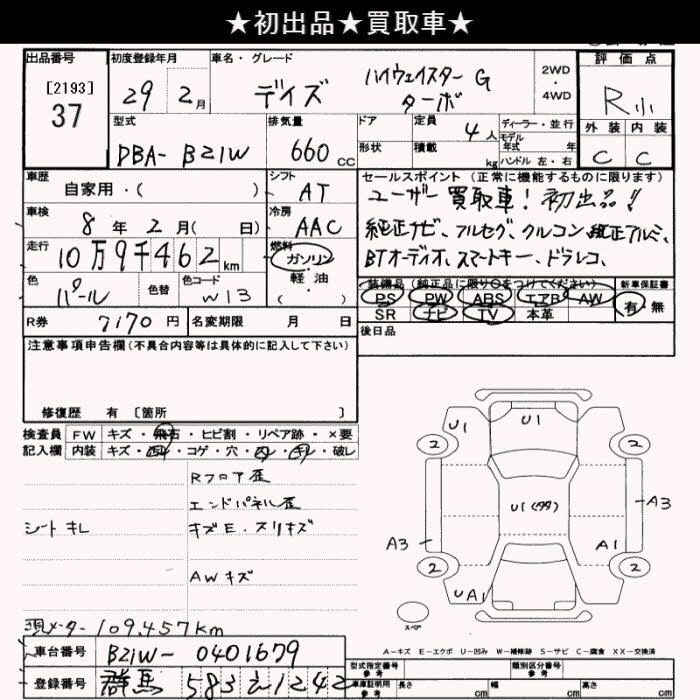 ★初出品★買取車★
出品番号
[2193]
37
初度登録年月
29 2月
車名・グレード
デイズ
ハイウェイスター G
ターボ
2WD
・
4WD
評価点
R小
外装 内装
C C
型式
DBA- B21W
排気量
660 CC
ドア
形状
定員
4人
積載
kg
ディーラー・並行
モデル
年式 年
ハンドル 左・右
車歴
自家用・( )
シフト
AT
セールスポイント (正常に機能するものに限ります)
ユーザー買取車!初出品!!
純正ナビ、フルセグ、クルコン、純正アルミ、
BTオーディオ、スマートキー、ドラレコ、
車検
8年 2月( 日)
冷房
AAC
走行
10万9千462km
燃料
ガソリン
軽・油
( )
色
パール
色替
色コード
W13
装備品 (純正品に限り○をつけてください)
PS PW ABS エアB AW
SR ナビ TV 本革
新車保証書
有 無
R券 7170円
名変期限 月 日
後日品
注意事項申告欄(不具合内容等は具体的に記入して下さい)
修復歴 有 〔箇所 〕
検査員
記入欄
FW キズ・飛石・ヒビ割・リペア跡・×要
内装 キズ・汚レ・コゲ・穴・凹・キレ・破レ
Rフロア歪
エンドパネル歪
シートキレ
キズE・スリキズ
AWキズ
現メーター109,457km
車台番号 B21W-0401679
登録番号 群馬 583 え1242
U1 U1
2 2
U1(タタ)
A3 A3
A1
2 2
UA1
スペア
A-キズ E-エクボ U-凹み W-補修跡 S-サビ C-腐食 XX-交換済
型式指定番号
参考
類別区分番号
参考
車庫証明用
参考
長さ cm
幅 cm
高さ cm